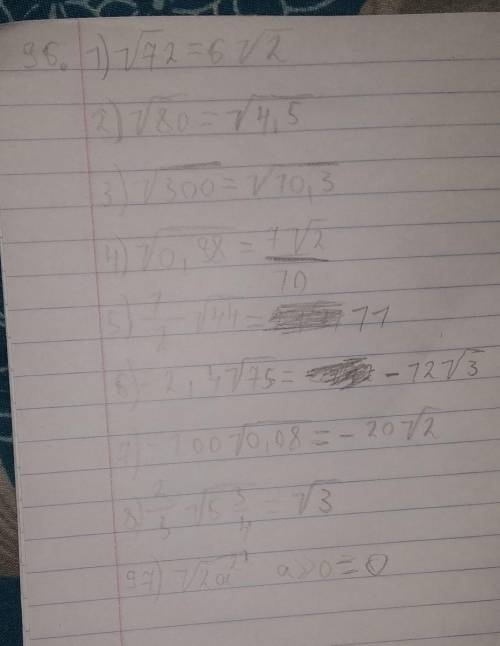 96. 1) √72 = 6√2
2) √80 = √4,5
3) √300 = √10,3
4) √0,98 = 7√2/10
5) 1/2 √44 = 11
6) 2,4√75 = -12√3
7) -100√0,08 = -20√2
8) 2/3 √5 3/4 = √3
97) a≥0 = 0